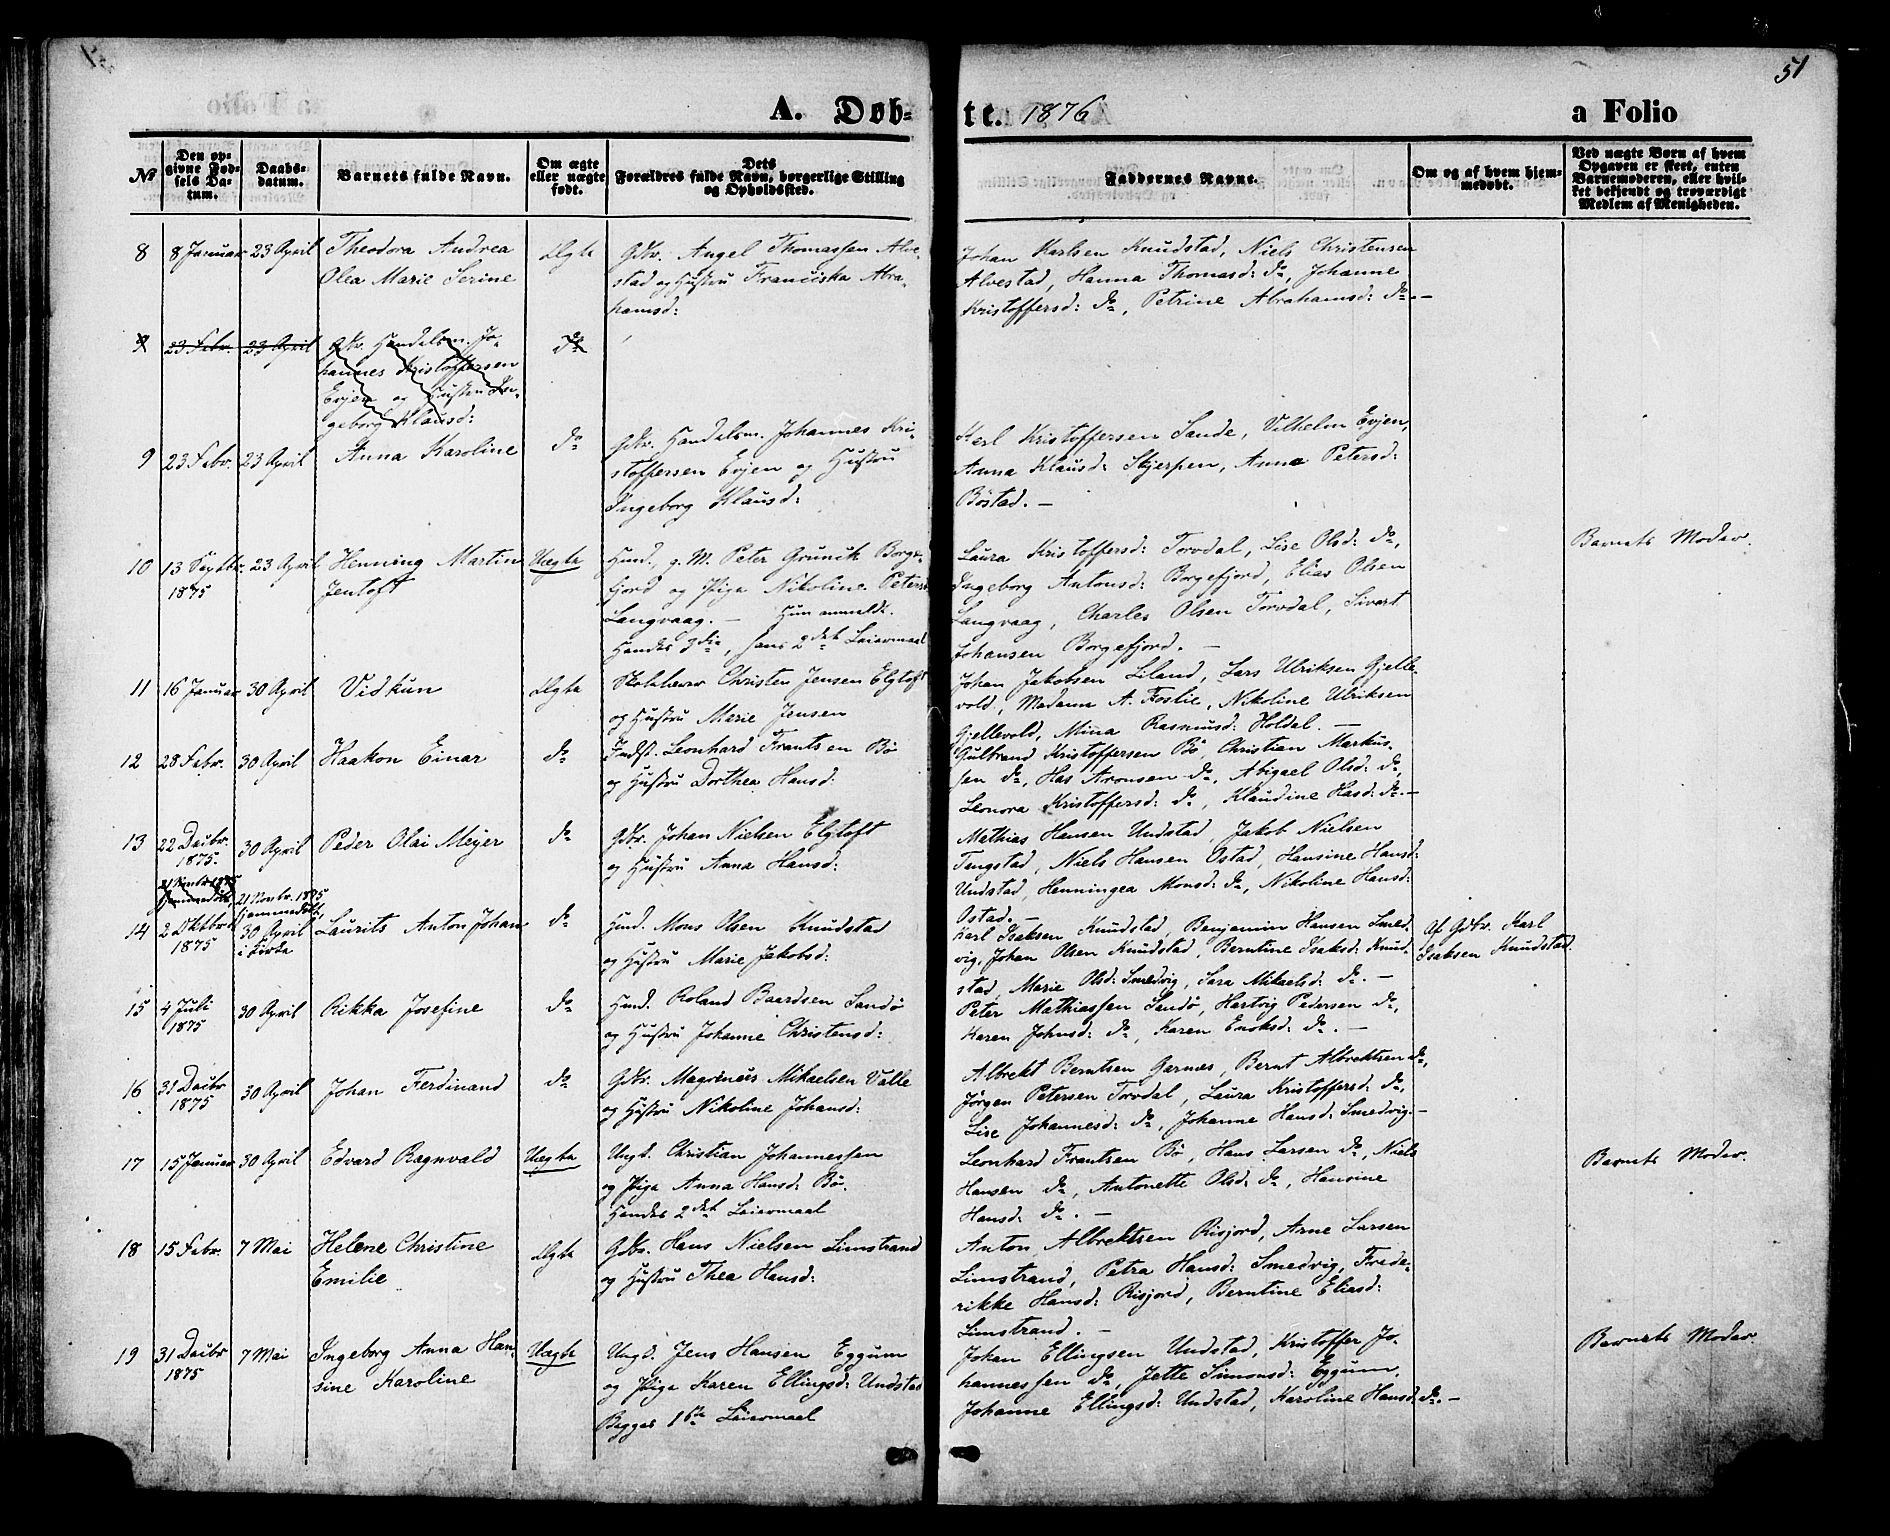 51
A. Døb-
te. 1876
a Folio
№
Den op-
givne Fød-
sels Da-
tum.
Daabs-
datum.
Barnets fulde Navn.
Om ægte
eller uægte
født.
Dets
Forældres fulde Navn, borgerlige Stilling
og Opholdssted.
Faddernes Navne.
Om og af hvem hjem-
medøbt.
Ved uægte Børn af hvem
Opgaven er skeet, enten
Barnemoderen, eller hvil-
ket bekjendt og troværdigt
Medlem af Menigheden.
8
8 Januar
23 April
Theodora Andrea
Olea Marie Serine
Ægte
Gdbr. Angel Thomassen Alve-
stad og Hustru Franciska Abra-
hamsd:
Johan Karlsen Knudstad, Niels Christensen
Alvestad, Hanna Thomasd: do, Johanne
Kristoffersd: do, Petrine Abrahamsd: do. -
9
23 Febr.
23 April
Gdbr. Handelsm. Jo-
hannes Kristoffersen
Evjen og Hustru In-
geborg Klausd:
do
9
23 Febr.
23 April
Anna Karoline
do
Gdbr. Handelsm. Johannes Kri-
stoffersen Evjen og Hustru
Ingeborg Klausd:
Karl Kristoffersen Sande, Vilhelm Evjen,
Anna Klausd: Skjerpen, Anna Petersd:
Böstad. -
10
13 Septbr.
1875
23 April
Henning Martin
Jentoft
Uægte
Hmd. g. M. Peter Grunik Borge-
fjord og Pige Nikoline Petersd:
Langvaag. - Hun anmeldt.
Hendes 3die, hans 2det Leiermaal
Laura Kristoffersd: Torvdal, Lise Olsd: do,
Ingeborg Antonsd: Borgefjord, Elias Olsen
Langvaag, Charles Olsen Torvdal, Sivert
Johansen Borgefjord. -
Barnets Moder.
11
16 Januar
30 April
Vidkun
Ægte
Skolelærer Christen Jensen Elgtoft
og Hustru Merie Jensen
Johan Jakobsen Liland, Lars Ulriksen Gjelle-
vold, Madam A. Foslie, Nikoline Ulriksen
Gjellevold, Mina Rasmusd: Holdal. -
12
28 Febr.
30 April
Haakon Einar
do
Indst. Leonhard Frantsen Bö
og Hustru Dorthea Hansd:
Gulbrand Kristoffersen Bö, Christian Markus-
sen do, Has Aronsen do, Abigael Olsd: do,
Leonora Kristoffersd: do, Klaudine Hasd: do. -
13
22 Decbr.
1875.
30 April
Peder Olai Meyer
do
Gdbr. Johan Nielsen Elgtoft
og Hustru Anna Hansd:
Mathias Hansen Undstad, Jakob Nielsen
Tangstad, Niels Hansen Ostad, Hansine Hansd:
Undstad, Henningea Monsd: do, Nikoline Hansd:
Ostad. -
14
21 Novbr 1875
Hjemmedöbt
2 Oktbr
1875
21 Novbr. 1875
Hjemmedöbt,
30 April
i Kirke
Laurits Anton Johan
do
Hmd. Mons Olsen Knudstad
og Hustru Marie Jakobsd:
Karl Isaksen Knudstad, Benjamin Hansen Smed-
vig, Johan Olsen Knudstad, Berntine Isaksd: Knud-
stad, Marie Olsd: Smedvig, Sara Mikaelsd: do. -
Af Gdbr. Karl
Isaksen Knudstad.
15
4 Juli
1875
30 April
Rikka Josefine
do
Hmd. Roland Baardsen Sandö
og Hustru Johanne Christensd:
Peter Mathiassen Sandö, Hartvig Pedersen do,
Karen Johnsd: do, Karen Enoksd: do. -
16
31 Decbr
1875
30 April
Johan Ferdinand
do
Gdbr. Magrinus Mikaelsen Valle
og Hustru Nikoline Johansd:
Albrekt Berntsen Garnæs, Bernt Albrektsen do,
Jörgen Petersen Torvdal, Laura Kristoffersd: do,
Lise Johannesd: do, Johanne Hansd: Smedvig. -
17
15 Januar
30 April
Edvard Ragnvald
Uægte
Ungk. Christian Johannessen
og Pige Anna Hansd: Bö.
Hendes 2det Leiermaal
Leonhard Frantsen Bö, Hans Larsen do, Niels
Hansen do, Antonette Olsd: do, Hansine
Hansd: do. -
Barnets Moder.
18
15 Febr.
7 Mai
Helene Christine
Emilie
Ægte
Gdbr. Hans Nielsen Limstrand
og Hustru Thea Hansd:
Anton Albrektsen Risjord, Arne Larsen
Limstrand, Petra Hansd: Smedvig, Frede-
rikke Hansd: Risjord, Berntine Eliasd:
Limstrand. -
19
31 Decbr
1875
7 Mai
Ingeborg Anna Han-
sine Karoline
Uægte
Ungk. Jens Hansen Eggum
og Pige Karen Ellingsd: Undstad
Begges 1ste Leiermaal
Johan Ellingsen Undstad, Kristoffer Jo-
hannessen do, Jette Simonsd: Eggum,
Johanne Ellingsd: Undstad, Karoline Hansd: do. -
Barnets Moder.